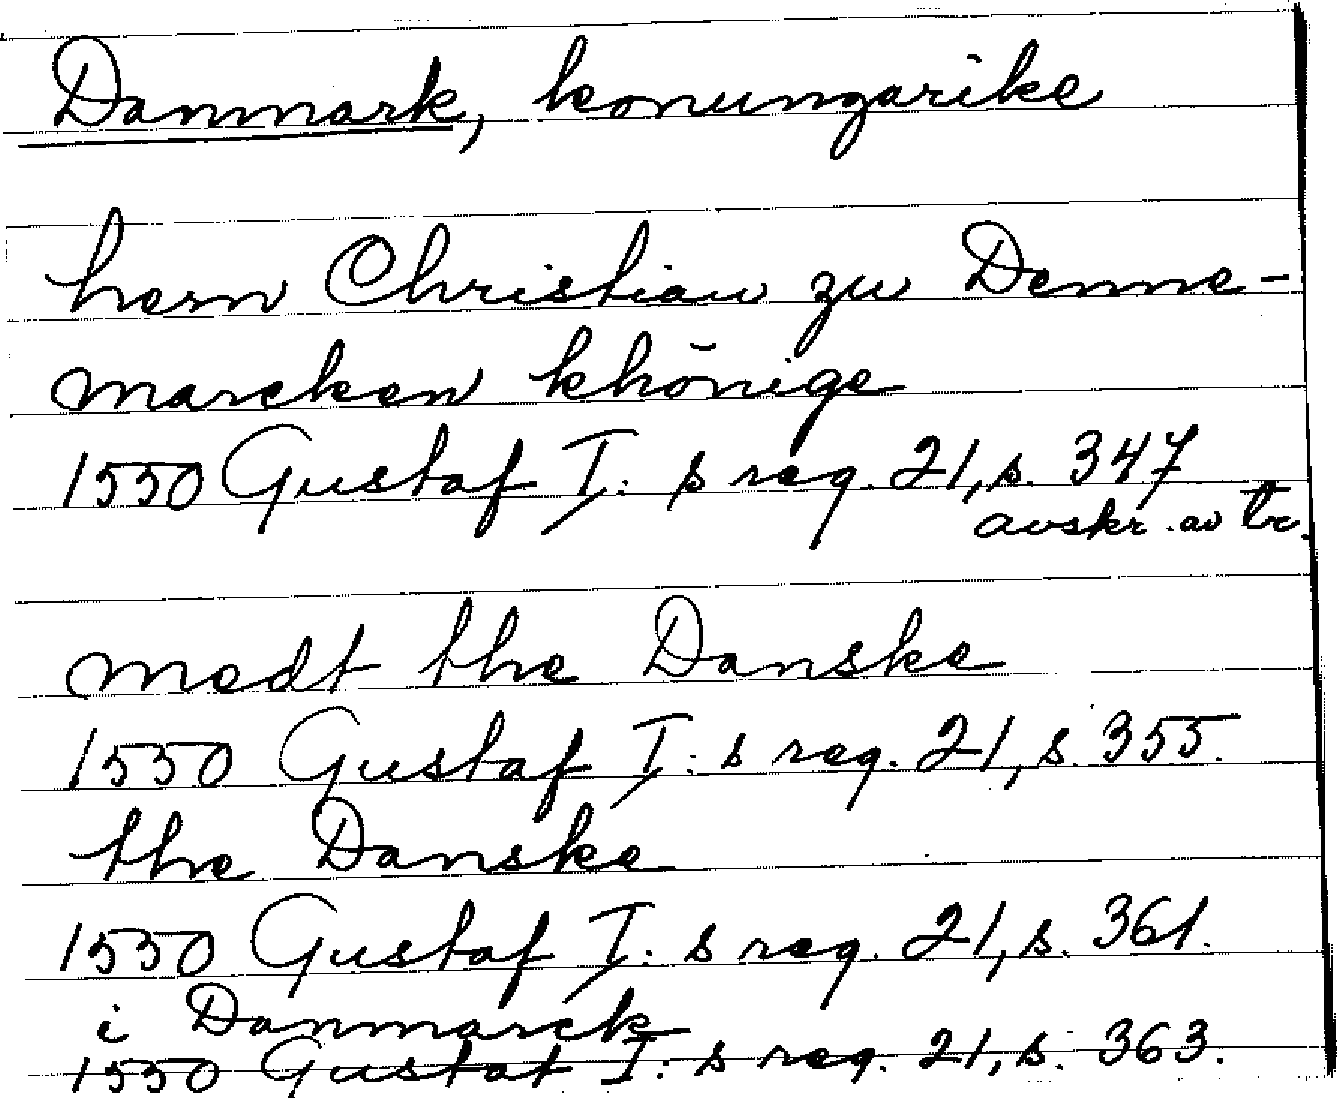 Danmark, konungarike
hern Christian zu Denne-
marcken khönige
1550 Gustaf I: s reg. 21, s. 347
avskr. av tr.
medt the Danske
1550 Gustaf I: s reg. 21, s. 355.
the Danske
1550 Gustaf I: s reg. 21, s. 361.
i Danmarck
1550 Gustaf I: s reg. 21, s. 363.